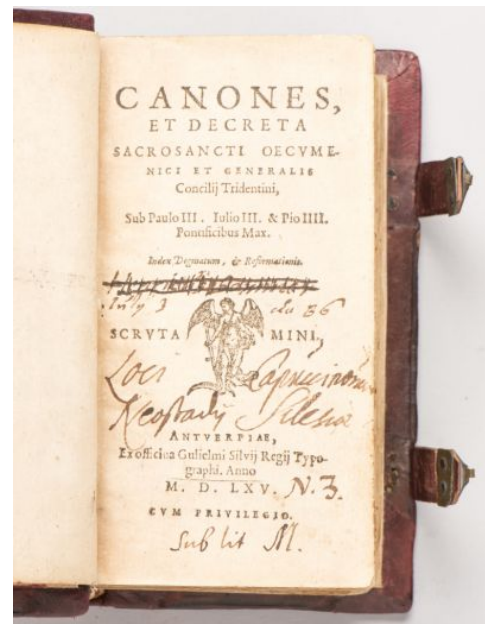 CANONES,
ET DECRETA
SACROSANCTI OECVME-
NICI ET GENERALIS
Concilij Tridentini,
Sub Paulo III. Iulio III. & Pio IIII.
Pontificibus Max.
Index Dogmatum, & Reformationis.
SCRVTA MINI,
Loci Capucinorum
Neostadij Silesiæ
ANTVERPIAE,
Ex officina Gulielmi Silvij Regij Typo-
graphi. Anno
M. D. LXV. N. 3.
CVM PRIVILEGIO.
Sub lit M.